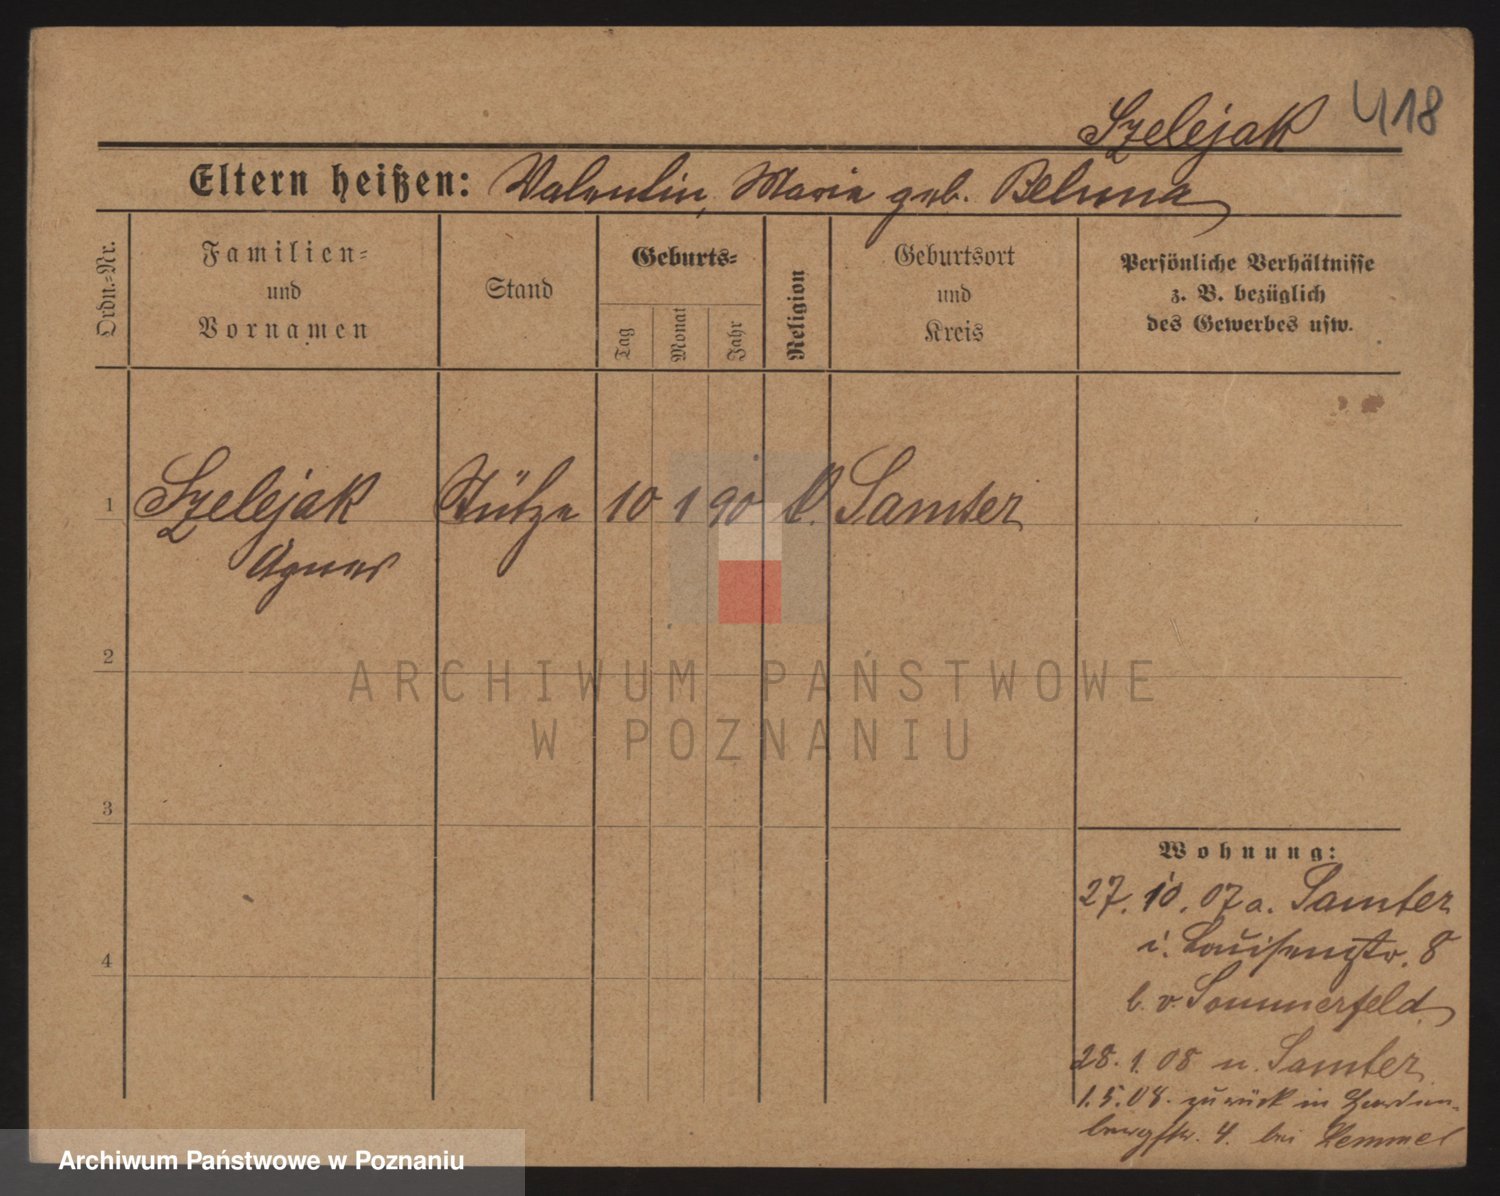 418
Szelejak
Eltern heißen: Valentin, Marie geb.
Ordn.-Nr.
Familien-
und
Vornamen
Stand
Geburts-
Tag
Monat
Jahr
Religion
Geburtsort
und
Kreis
Persönliche Verhältnisse
z. B. bezüglich
des Gewerbes usw.
1 Szelejak Stütze 10 1 90 k. Samter
Agnes
2
ARCHIWUM PAŃSTWOWE
W POZNANIU
3
Wohnung:
27. 10. 07 a. Samter
i. Louisenstr. 8
b. v. Sommerfeld
4
28. 1. 08 n. Samter
1. 5. 08. zurück in Harden-
bergstr. 4. bei Hemmel
Archiwum Państwowe w Poznaniu